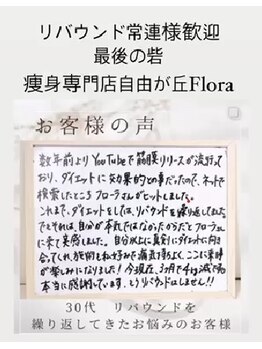 リバウンド常連様歓迎
最後の砦
痩身専門店自由が丘Flora
お客様の声
数年前よりYouTubeで筋膜リリースが流行って
おり、ダイエットに効果的との事だったので、ネットで
検索したところフローラさんがヒットしました。
これまで、ダイエットをしては、リバウンドを繰り返してました
でもそれは、自分が本気ではなかったからだとフローラさん
に来て実感しました。自分以上に真剣にダイエットに向き
合ってくれ、施術もお好みで 、ここに来る事
が楽しみになりました!!今現在、3ヶ月で 減で
本当に感謝しています。もうリバウンドはしません!!
30代 リバウンドを
繰り返してきたお悩みのお客様